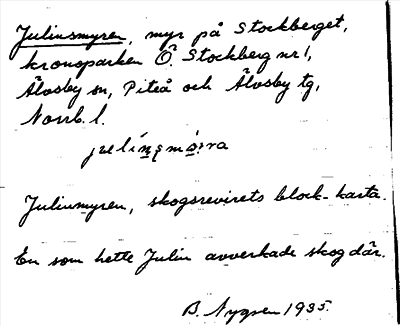 Juliusmyren, myr på Stockberget,
kronoparken Ö. Stockberg nr 1,
Älvsby sn, Piteå och Älvsby tg,
Norrb. l.
Juliusmyren, skogsrevirets block-karta.
En som hette Julin avverkade skog där.
B. Nygren 1935.